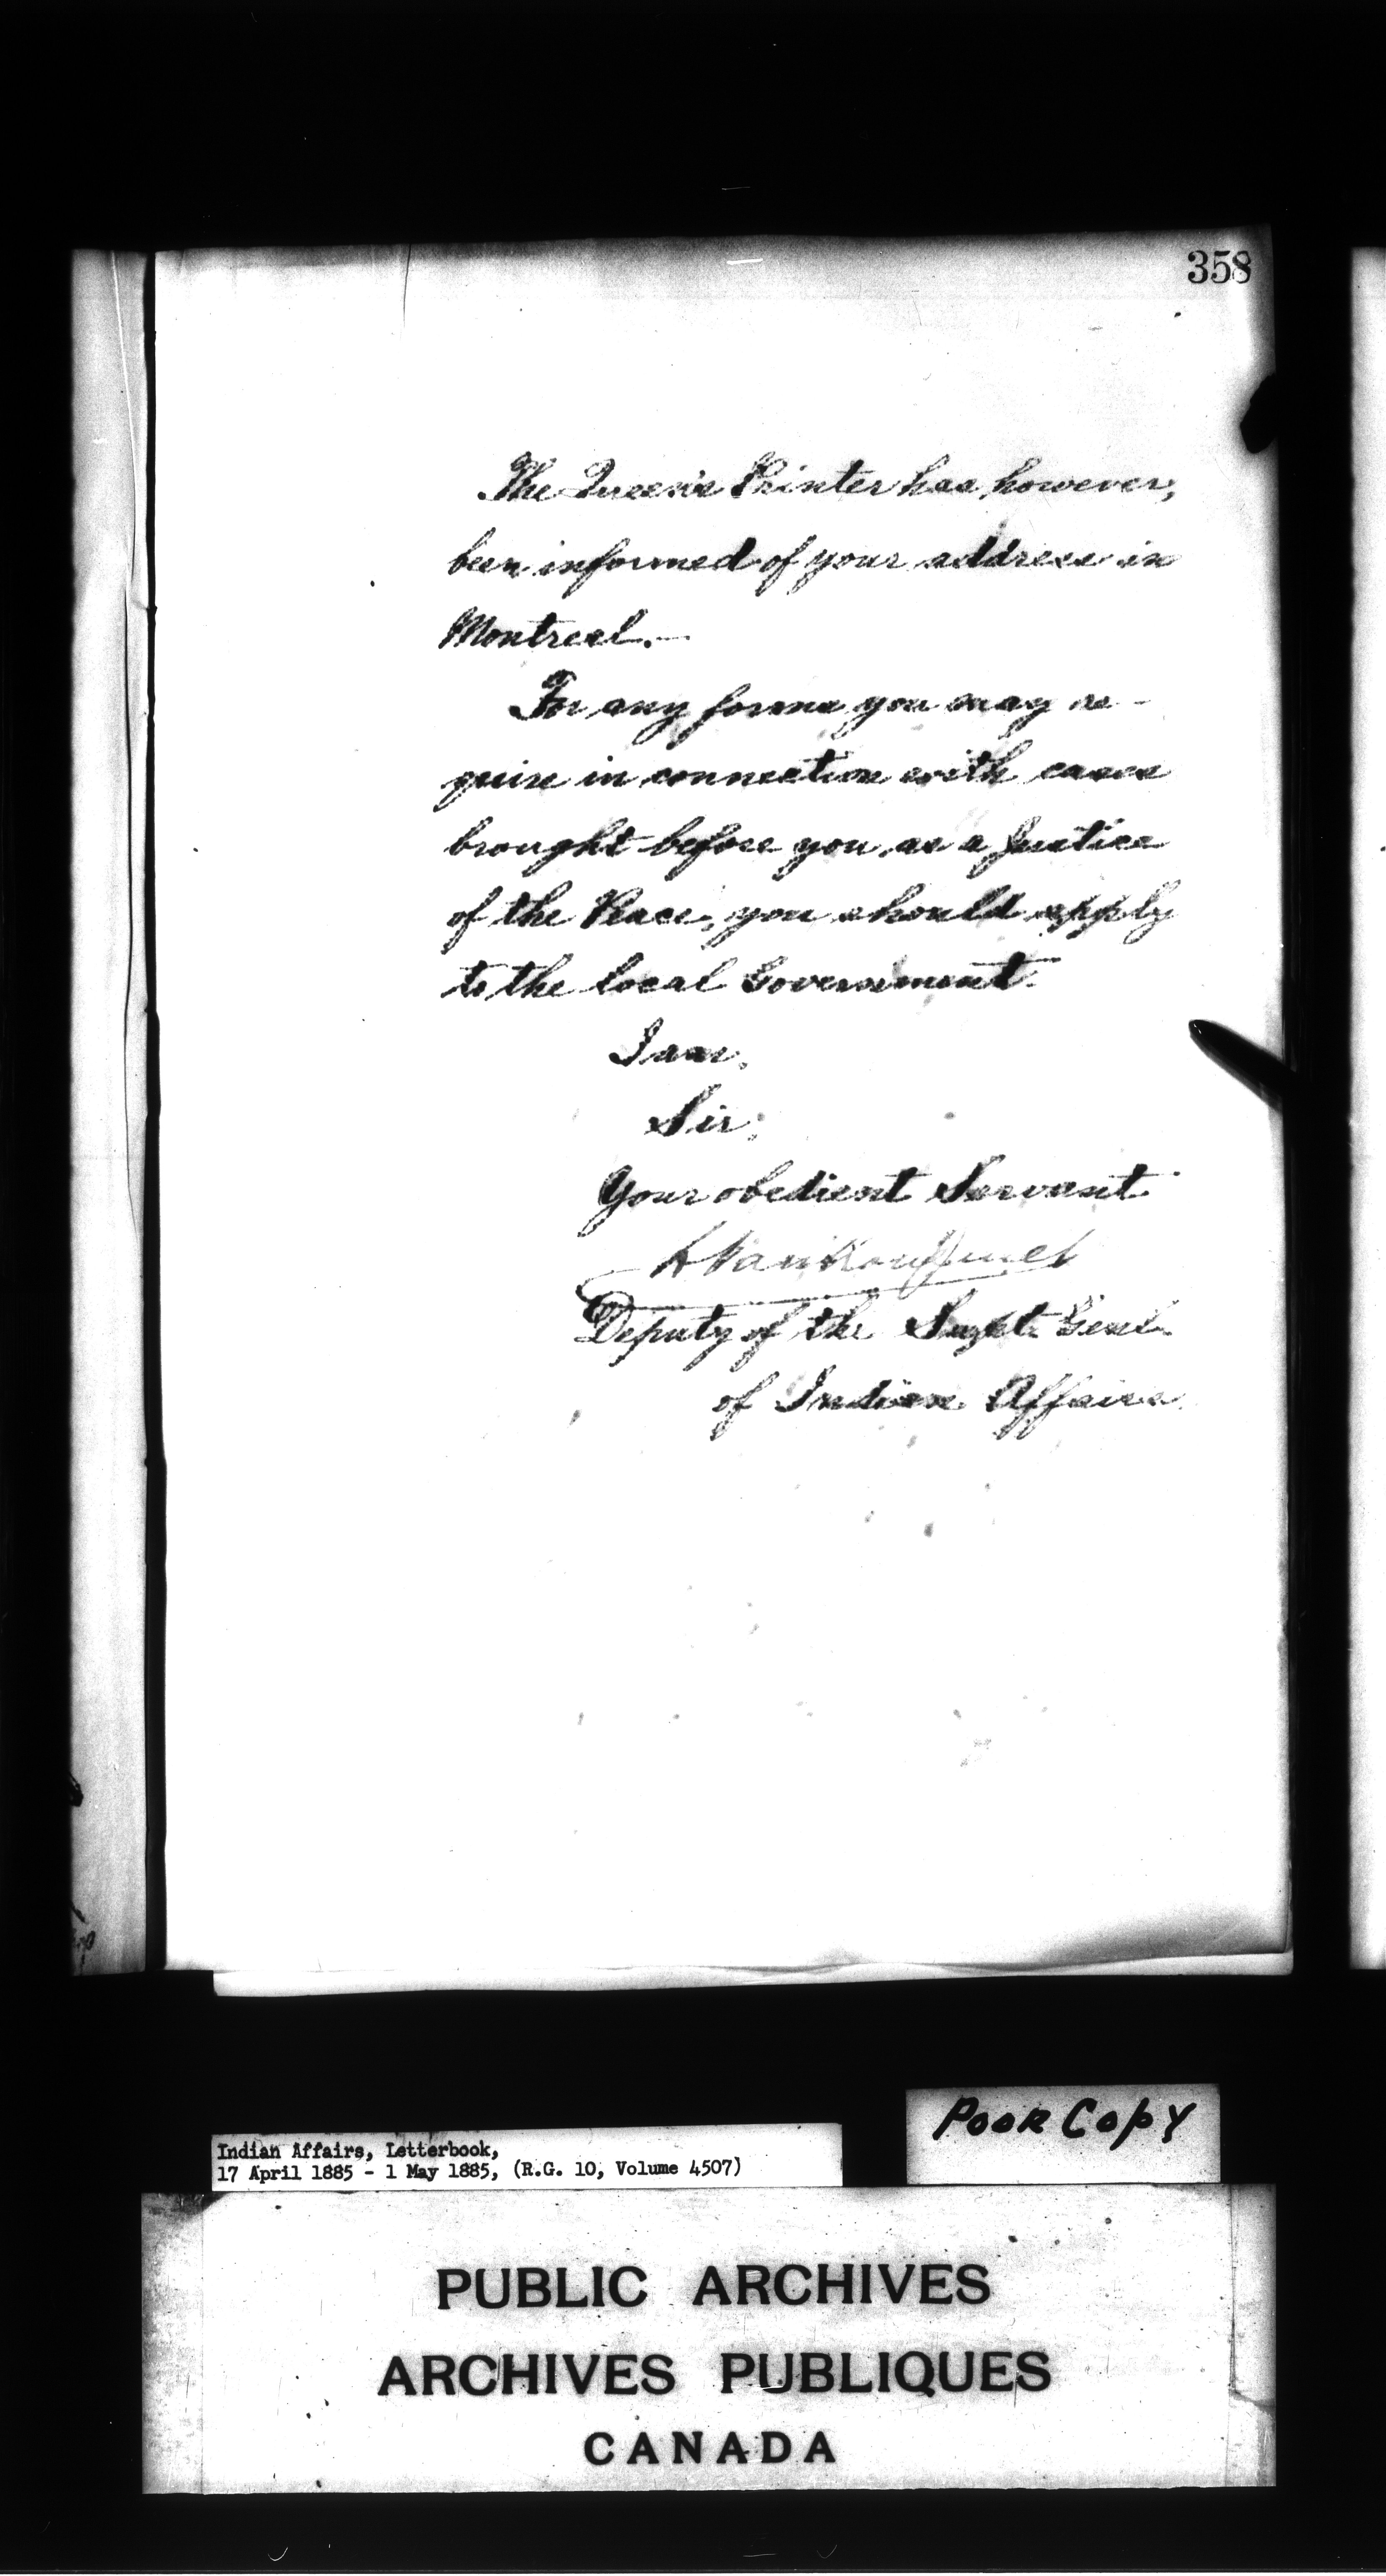 358
The Queen's Printer has, however,
been informed of your address in
Montreal.—
For any forms you may re-
quire in connection with cases
brought before you, as a Justice
of the Peace, you should apply
to the local Government.
I am,
Sir,
Your obedient Servant
L. VanKoughnet
Deputy of the Supt. Genl.
of Indian Affairs.
POOR COPY
Indian Affairs, Letterbook,
17 April 1885 - 1 May 1885, (R.G. 10, Volume 4507)
PUBLIC ARCHIVES
ARCHIVES PUBLIQUES
CANADA